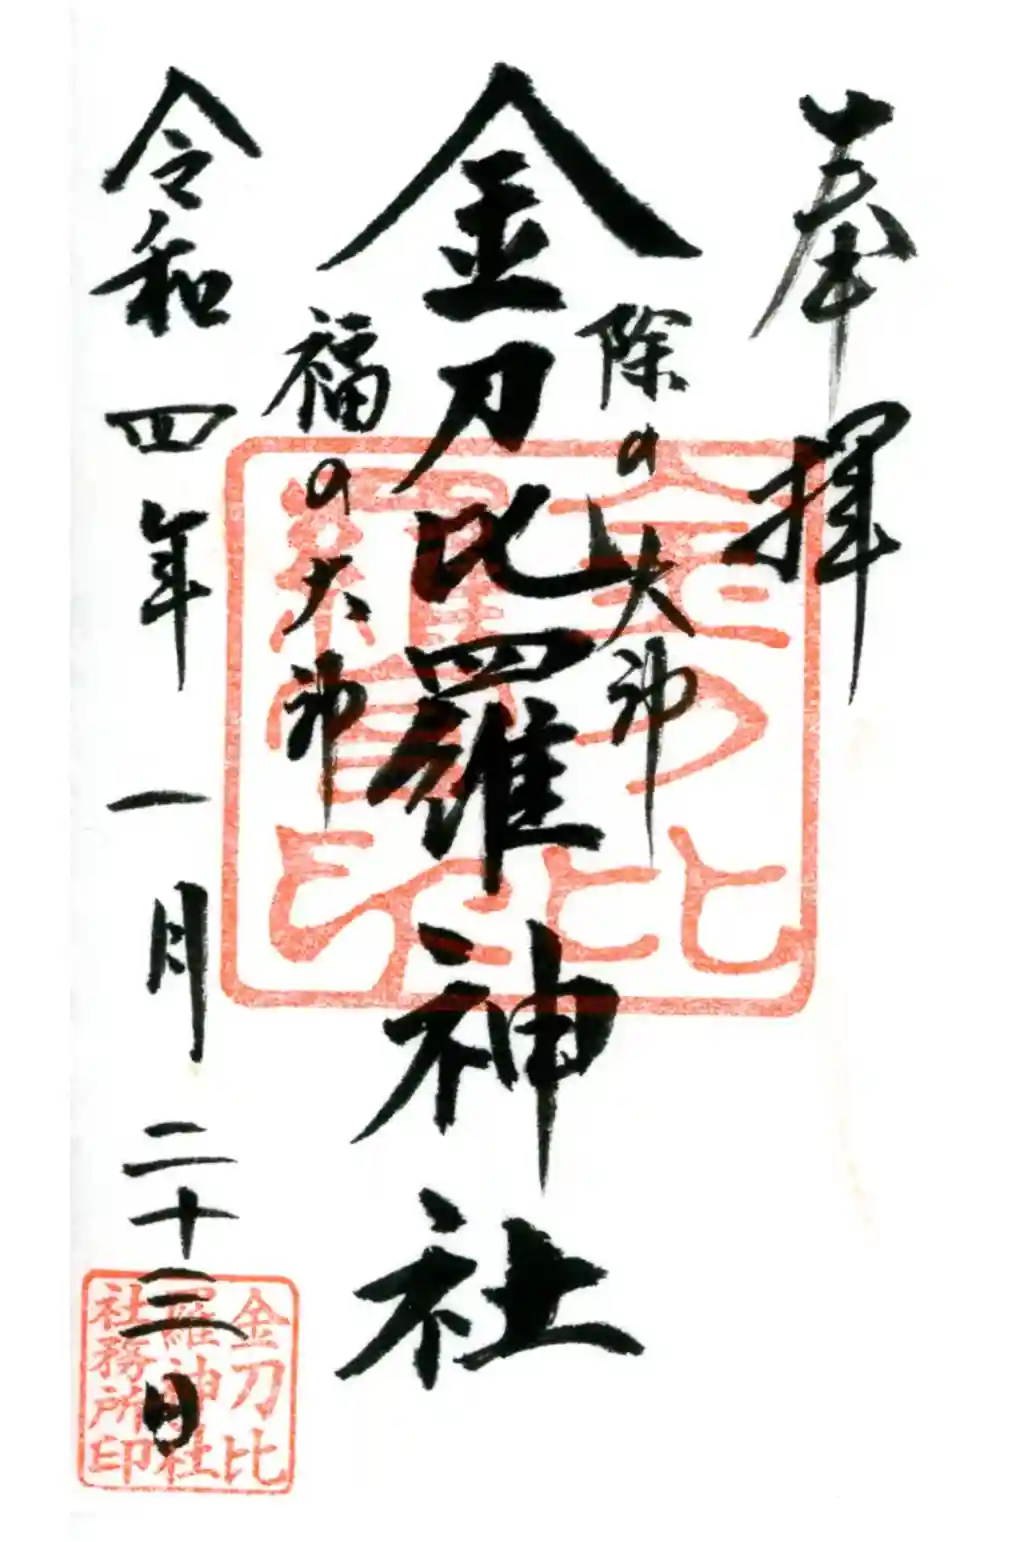 奉拝
除の大神
金刀比羅神社
福の大神
令和四年一月二十三日
金刀比
羅宮印
金刀比
羅神社
社務所印